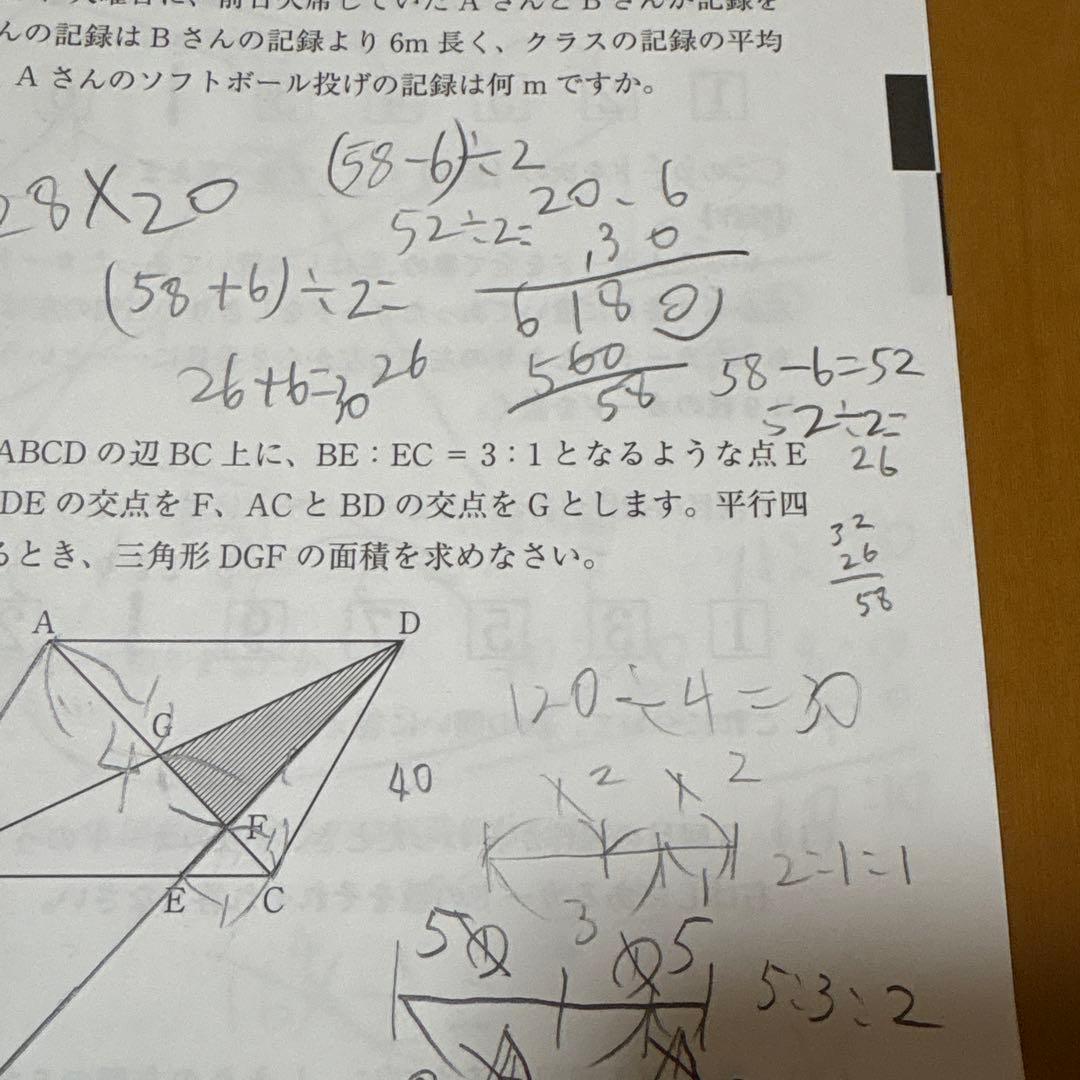 んの記録は B さんの記録より 6m 長く、クラスの記録の平均
A さんのソフトボール投げの記録は何 m ですか。
28×20
(58-6)÷2
52÷2=
20. 6
30
6180
560
58
(58+6)÷2=
26+6=30
26
58-6=52
52÷2=
26
ABCD の辺 BC 上に、BE : EC = 3 : 1 となるような点 E
DE の交点を F、AC と BD の交点を G とします。平行四
るとき、三角形 DGF の面積を求めなさい。
32
26
58
A
D
G
4
F
E
C
1
120÷4=30
40
×2 ×2
1
2:1:1
5 3 5
5:3:2